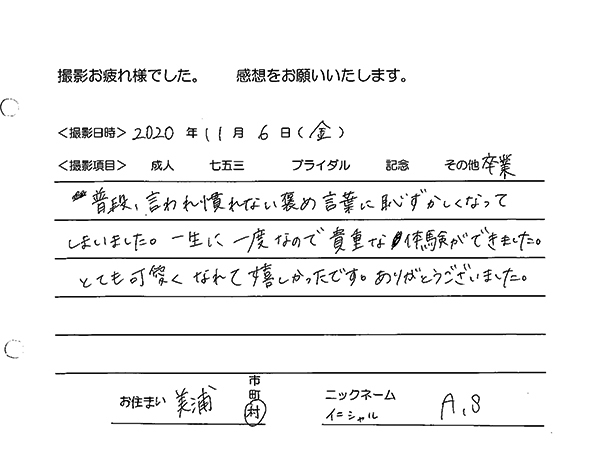 撮影お疲れ様でした。 感想をお願いいたします。
<撮影日時> 2020 年 11 月 6 日 (金)
<撮影項目> 成人 七五三 ブライダル 記念 その他 卒業
普段、言われ慣れない褒め言葉に恥ずかしくなって
しまいました。一生に一度なので貴重な体験ができました。
とても可愛くなれて嬉しかったです。ありがとうございました。
お住まい 美浦 市町村 ニックネーム イニシャル A.S